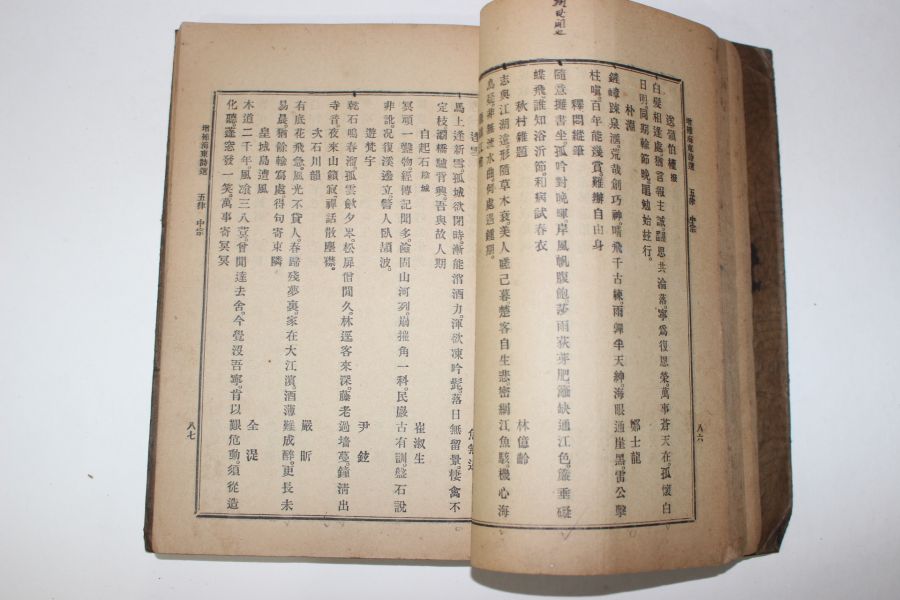 八六
白髮相逢處猶言報主誠。恩共淪落。寧爲復恩榮。萬事蒼天在孤懷白
日明。同期輸節晚。勉始玆行。
朴淵 鄭士龍
鏟嶂踈泉漢。荒哉創巧神。晴飛千古練。雨彈半天紳。海眼通崖黑。雷公擊
柱嗔。百年能幾賞。難辦自由身
釋悶縱筆
隨意攤書坐。孤吟對晩暉。岸風帆腹飽。莎雨荻芽肥。籬缺通江色。簾垂礙
蝶飛。誰知浴沂節。和病試春衣
秋村雜題 林億齡
志與江湖遠。形隨草木衰。美人嗟己暮。楚客自生悲。密網江魚駭。機心海
鳥疑。非無流水曲。何處遇鍾期。
增補海東詩選 五律 中宗
八七
馬上逢新雪。孤城欲閉時。漸能消酒力。渾欲凍吟髭。落日無留景。棲禽不
定枝。灞橋驢背興。吾與故人期
自起石陰城 崔淑生
冥頑一醜物。經傳記聞多。險固山河列。崩摧角一科。民巖古有訓。盤石說
非訛。况復溪邊立。驚人臥頷波。
遊梵宇 尹鉉
乾石鳴春溜。孤雲斂夕岑。松扉僧閒久。林逕客來深。藤老過墻蔓。鐘淸出
寺音。夜來山鎖寂。禪話散塵襟。
次石川韻 嚴昕
有底花飛急。風光不貸人。春歸殘夢裏。家在大江濱。酒薄難成醉。更長未
易晨。猶餘輸寫處。得句寄東隣
皇城島遭風 全湜
木道二千年。風飡三八蓂。曾聞達去舍。今覺沒吾寧。肯以艱危動。須從造
化聽。蓬窓發一笑。萬事寄冥冥
增補海東詩選 五律 中宗